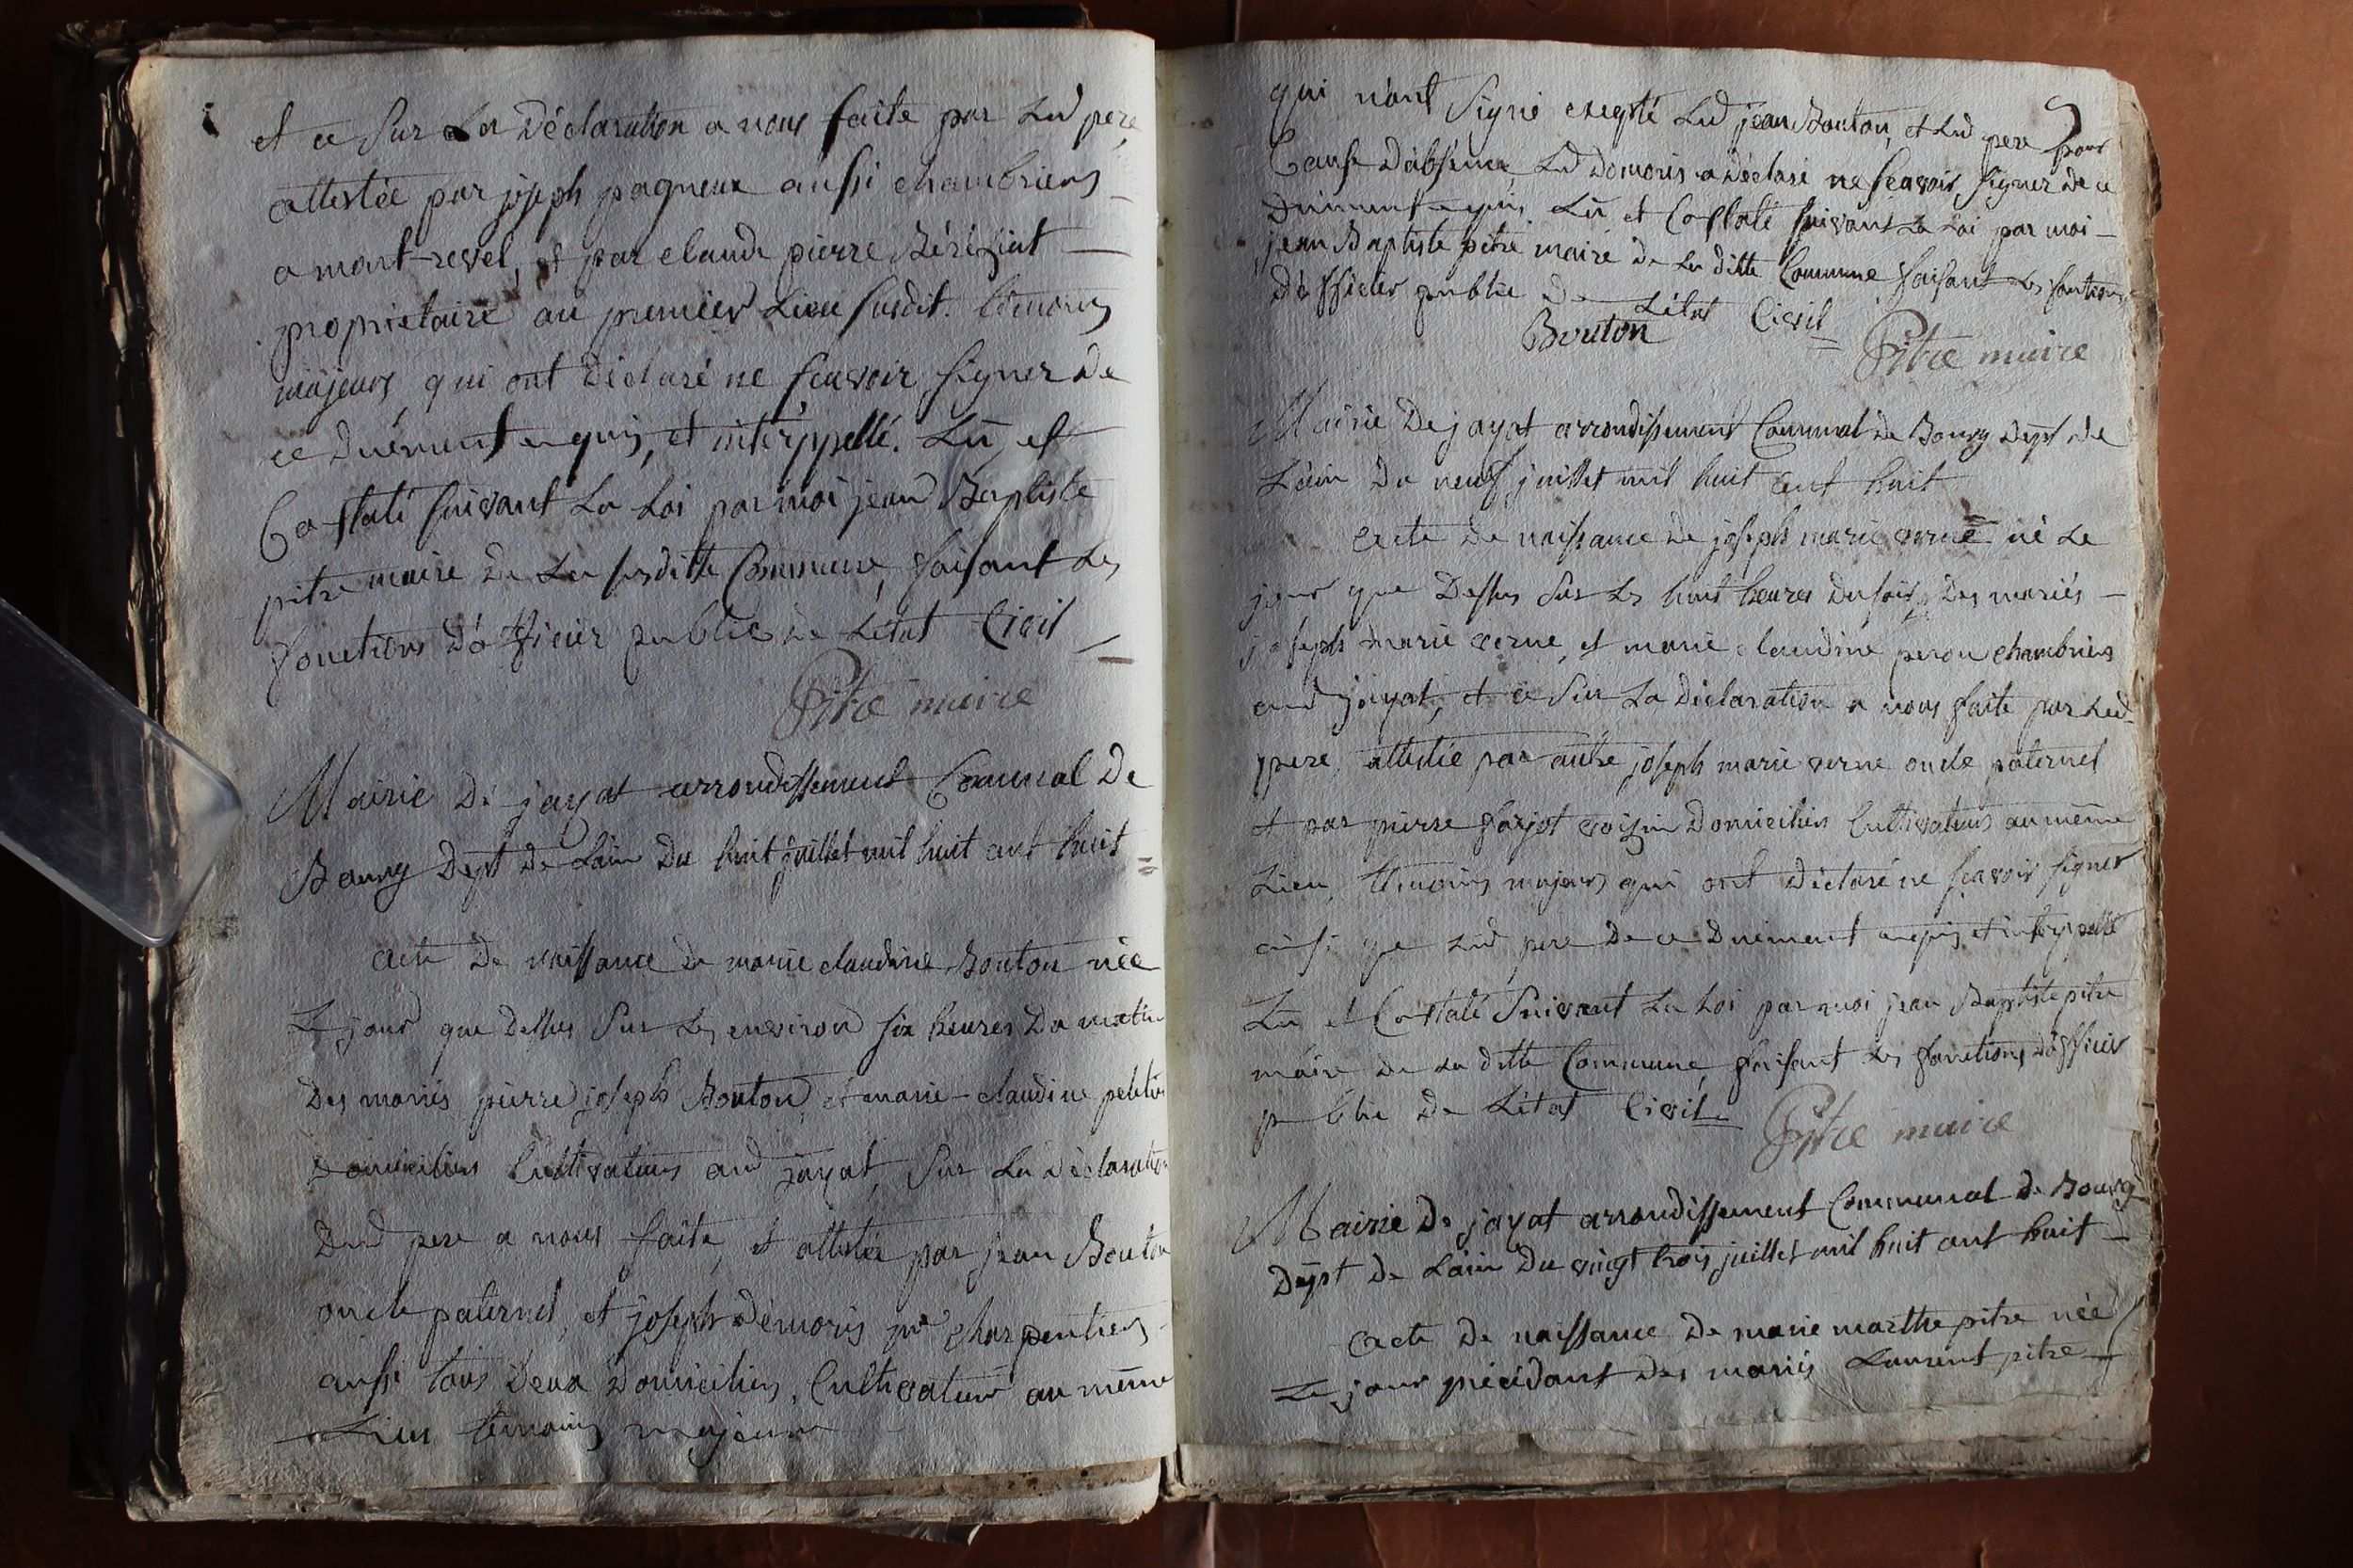 et ce sur La Déclaration a nous faite par Led pere,
attestée par joseph pagneux aussi chambriers
a mont-revel, et par claude pierre
propriétaire au premier Lieu susdit. témoins
majeurs, qui ont Déclaré ne scavoir signer De
ce Duement enquis, et interppellé. Lû et
Costaté suivant La Loi par moi jean Baptiste
pitre maire de La susditte Commune, faisant Les
fonctions D'officier public De L'état Civil
Pitre maire
Mairie De jayat arrondissement Communal De
Bourg Dept De Lain Du huit juillet mil huit cent huit =
acte De naissance De marie claudine Bouton née
Le jour que Dessus sur Les environ six heures Du matin
Des mariés pierre joseph Bouton, et marie-claudine
Domiciliés Cultivateurs aud jayat, sur La Déclaration
Dud pere a nous faite, et attestée par jean Bouton
oncle paternel, et joseph Démoris charpentiers
aussi tous Deux Domiciliés, Cultivateurs au même
Lieu témoins majeurs
qui n'ont signé exepté Led jean Bouton, et Led pere pour
Cause D'absence, Led Domoris a Déclaré ne scavoir signer De ce
Duement enquis Lû et Costaté suivant La Loi par moi
jean Baptiste pitre maire De La ditte Commune faisant Les fonctions
D'officier public De L'état Civil =
Bouton
Pitre maire
Mairie De jayat arrondissement Communal De Bourg Dept De
L'ain Du neuf juillet mil huit cent huit
acte De naissance De joseph marie verne né Le
jour que Dessus sur Les huit heures Du soir, Des mariés
joseph marie verne, et marie claudine perou chambriers
aud jayat, et ce sur La Déclaration a nous faite par Led
pere, attestée par autre joseph marie verne oncle paternel
et par pierre farjot voisin Domiciliés Cultivateurs au même
Lieu, témoins majeurs qui ont Déclaré ne scavoir signer
ainsi que Led pere De ce Duement enquis, et interppellé
Lû et Costaté suivant La Loi par moi jean Baptiste pitre
maire De La ditte Commune, faisant Les fonctions D'officier
public De L'état Civil
Pitre maire
Mairie De jayat arrondissement Communal De Bourg
Dept De L'ain Du vingt trois juillet mil huit cent huit
acte De naissance De marie marthe pitre née
Le jour précédant Des mariés Laurent pitre